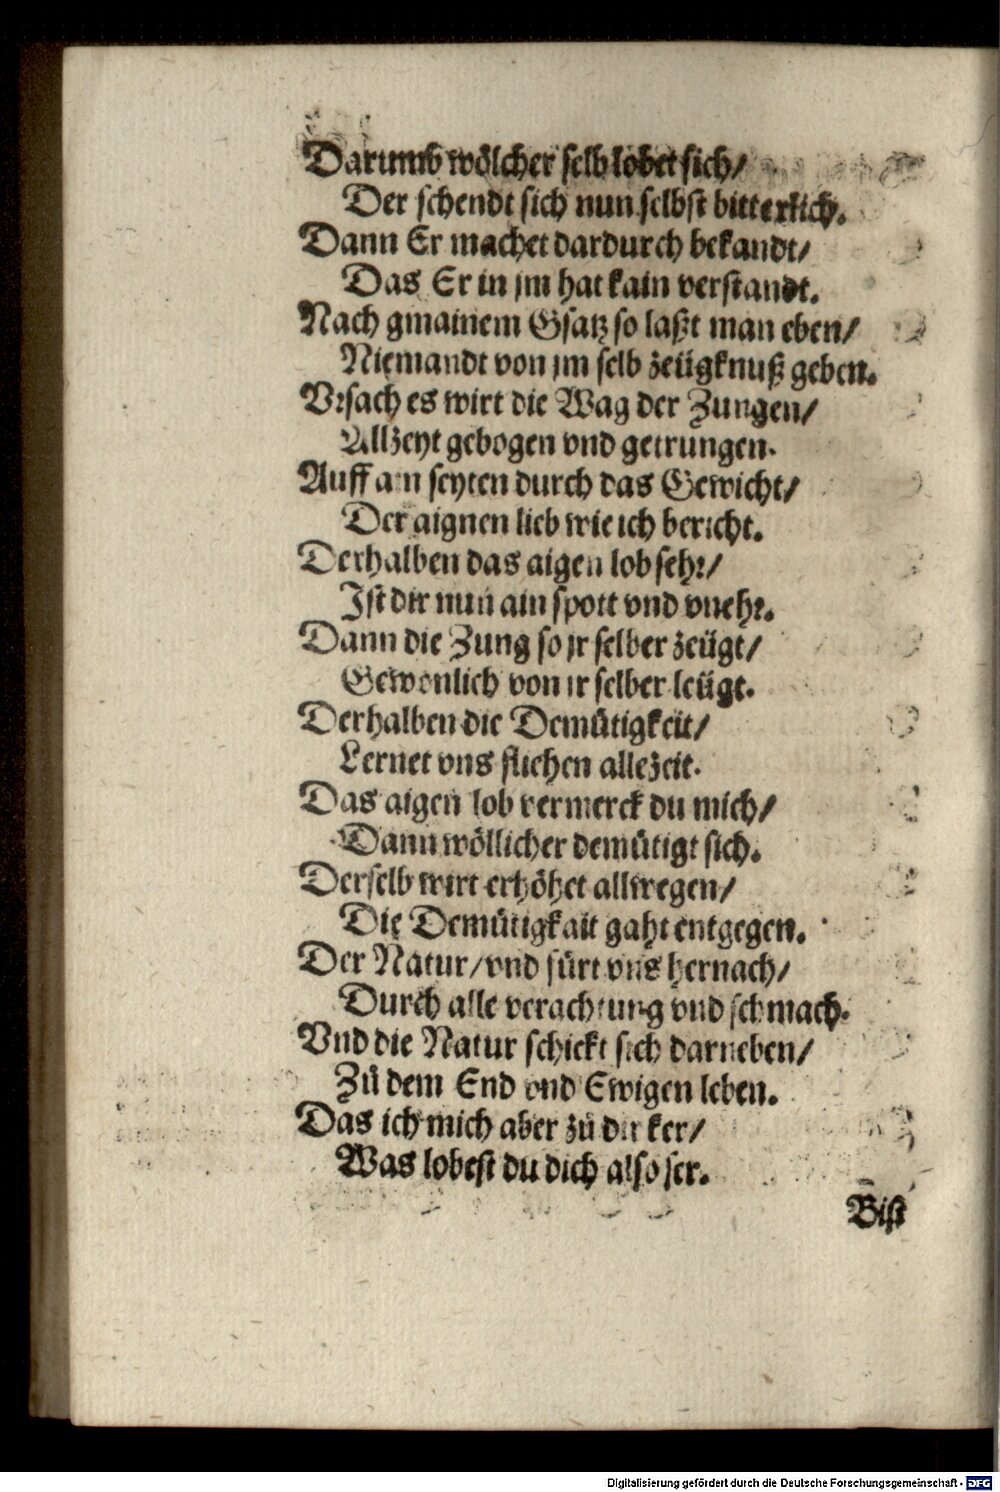 Darumb wölcher selb lobet sich/
Der schendt sich nun selbst bitterlich.
Dann Er machet dardurch bekandt/
Das Er in jm hat kain verstandt.
Nach gmainem Gsatz so laßt man eben/
Niemandt von jm selb zeügknuß geben.
Vrsach es wirt die Wag der Zungen/
Allzeyt gebogen vnd getrungen.
Auff ain seyten durch das Gewicht/
Der aignen lieb wie ich bericht.
Derhalben das aigen lob sehr/
Ist dir nun ain spott vnd vnehr.
Dann die Zung so jr selber zeügt/
Gewonlich von ir selber leügt.
Derhalben die Demütigkeit/
Lernet vns fliehen allezeit.
Das aigen lob vermerck du mich/
Dann wöllicher demütigt sich.
Derselb wirt erhöhet allwegen/
Die Demütigkait gaht entgegen.
Der Natur/vnd fürt vns hernach/
Durch alle verachtung vnd schmach.
Vnd die Natur schickt sich darneben/
Zů dem End vnd Ewigen leben.
Das ich mich aber zů dir ker/
Was lobest du dich also ser.
Bist
Digitalisierung gefördert durch die Deutsche Forschungsgemeinschaft - DFG